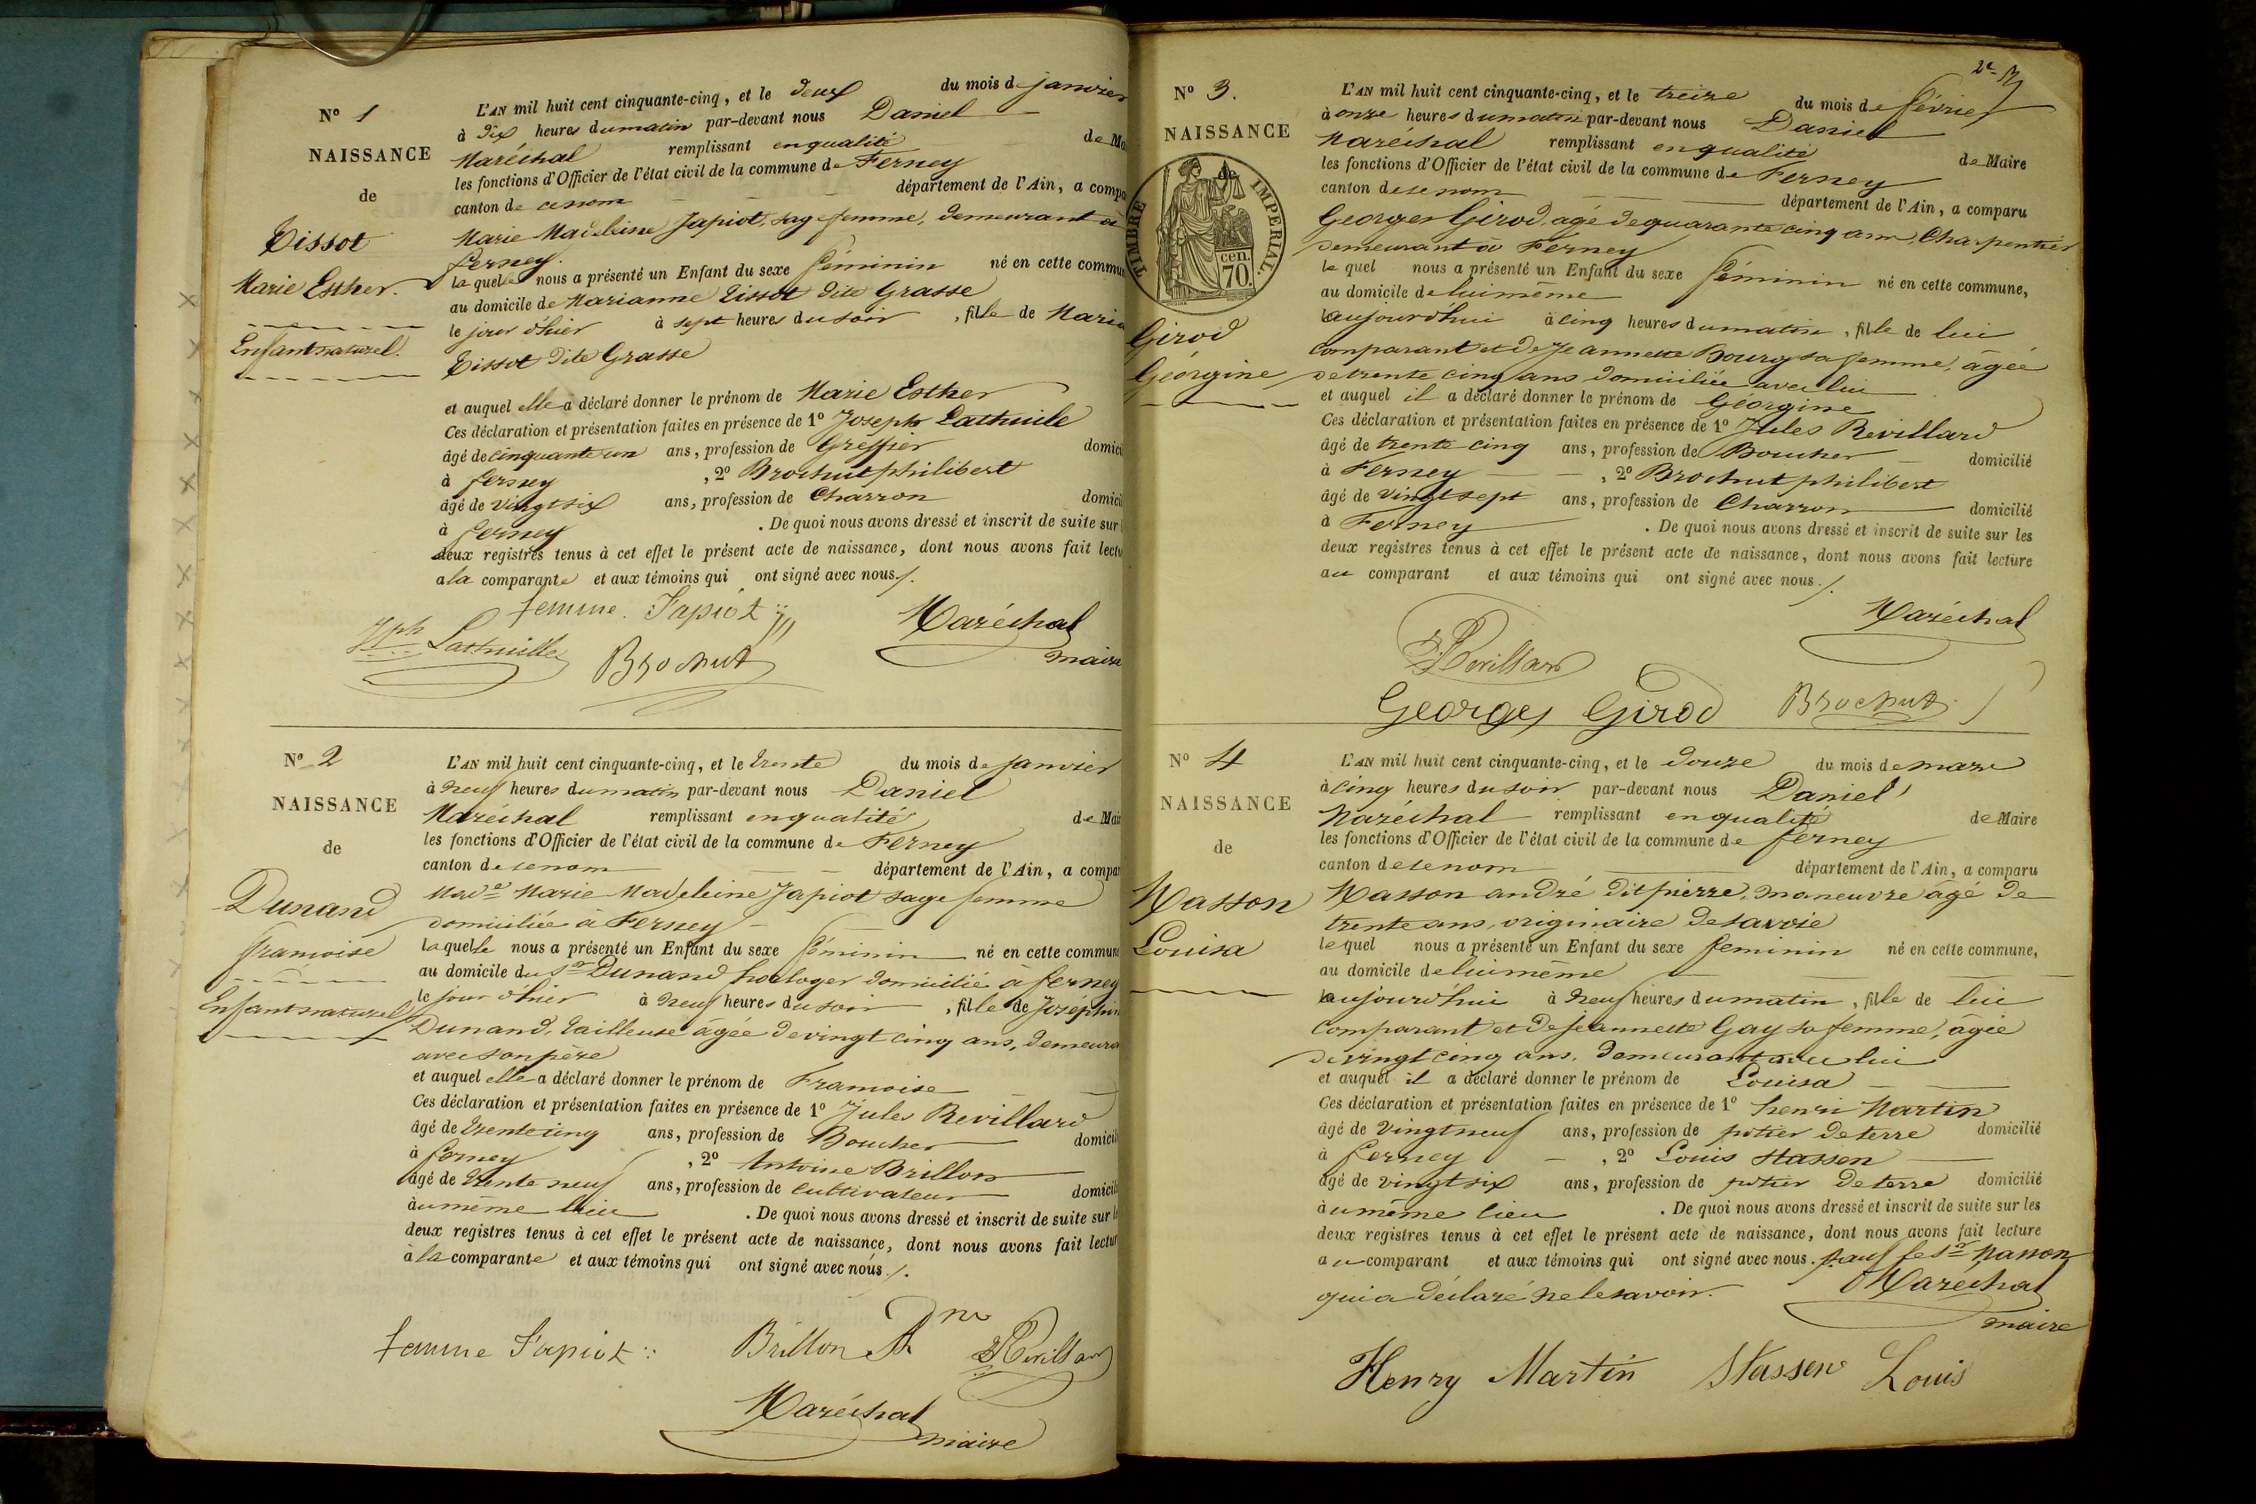 No 1
NAISSANCE
de
Tissot
Marie Esther.
Enfant naturel.
L'AN mil huit cent cinquante-cinq, et le deux du mois de janvier
à dix heures du matin par-devant nous Daniel
Maréchal remplissant en qualité de Ma
les fonctions d'Officier de l'état civil de la commune de Ferney
canton de ce nom département de l'Ain, a compa
Marie Madeleine Japiot, sage femme, demeurant à
ferney.
laquelle nous a présenté un Enfant du sexe féminin né en cette commun
au domicile de Marianne Tissot dite Grasse
le jour d'hier à sept heures du soir, fille de Maria
Tissot dite Grasse
et auquel elle a déclaré donner le prénom de Marie Esther
Ces déclaration et présentation faites en présence de 1o Joseph Lathuile
âgé de cinquante un ans, profession de Greffier domici
à ferney , 2o Brochut philibert
âgé de vingt six ans, profession de Charron domicil
à ferney . De quoi nous avons dressé et inscrit de suite sur
deux registres tenus à cet effet le présent acte de naissance, dont nous avons fait lectu
a la comparante et aux témoins qui ont signé avec nous ./.
femme Japiot
Jph Lathuille Brochut Maréchal
maire
No 2
NAISSANCE
de
Dunand
francoise
Enfant naturel
L'AN mil huit cent cinquante-cinq, et le trente du mois de janvier
à neuf heures du matin par-devant nous Daniel
Maréchal remplissant en qualité de Mair
les fonctions d'Officier de l'état civil de la commune de Ferney
canton de ce nom département de l'Ain, a compar
Made Marie Madeleine Japiot sage femme
domiciliée à Ferney
laquelle nous a présenté un Enfant du sexe féminin né en cette commune
au domicile du Sr Dunand horloger domicilié à ferney
le jour d'hier à neuf heures du soir , fille de Joséphin
Dunand, tailleuse âgée de vingt cinq ans, demeura
avec son père
et auquel elle a déclaré donner le prénom de Francoise
Ces déclaration et présentation faites en présence de 1o Jules Revillard
âgé de trente cinq ans, profession de Boucher domicili
à ferney , 2o Antoine Brillon
âgé de trente neuf ans, profession de cultivateur domicili
au même lieu . De quoi nous avons dressé et inscrit de suite sur l
deux registres tenus à cet effet le présent acte de naissance, dont nous avons fait lectur
à la comparante et aux témoins qui ont signé avec nous ./.
femme Japiot Brillon Ane JRevillard
Maréchal
maire
No 3.
NAISSANCE
de
TIMBRE IMPERIAL.
cen.
70.
Girod
Géorgine
L'AN mil huit cent cinquante-cinq, et le treize du mois de février
à onze heures du matin par-devant nous Daniel
Maréchal remplissant en qualité de Maire
les fonctions d'Officier de l'état civil de la commune de Ferney
canton de ce nom département de l'Ain, a comparu
Georges Girod, âgé de quarante cinq ans, Charpentier
demeurant à Ferney
lequel nous a présenté un Enfant du sexe féminin né en cette commune,
au domicile de lui même
aujourd'hui à cinq heures du matin, fille de lui
comparant et de Jeannette Bourg sa femme, âgée
de trente cinq ans domiciliée avec lui
et auquel il a déclaré donner le prénom de Géorgine
Ces déclaration et présentation faites en présence de 1o Jules Revillard
âgé de trente cinq ans, profession de Boucher domicilié
à Ferney , 2o Brochut philibert
âgé de vingt sept ans, profession de Charron domicilié
à Ferney . De quoi nous avons dressé et inscrit de suite sur les
deux registres tenus à cet effet le présent acte de naissance, dont nous avons fait lecture
au comparant et aux témoins qui ont signé avec nous ./.
Maréchal
JRevillard
Georges Girod Brochut
No 4
NAISSANCE
de
Masson
Louisa
L'AN mil huit cent cinquante-cinq, et le douze du mois de mars
à cinq heures du soir par-devant nous Daniel
Maréchal remplissant en qualité de Maire
les fonctions d'Officier de l'état civil de la commune de ferney
canton de ce nom département de l'Ain, a comparu
Masson andré dit pierre, maneuvre âgé de
trente ans, originaire de savoie
lequel nous a présenté un Enfant du sexe feminin né en cette commune,
au domicile de lui même
aujourd'hui à neuf heures du matin, fille de lui
comparant et de jeannette Gay sa femme, âgée
de vingt cinq ans, demeurant avec lui
et auquel il a déclaré donner le prénom de Louisa
Ces déclaration et présentation faites en présence de 1o henri Martin
âgé de vingt neuf ans, profession de potier de terre domicilié
à ferney , 2o Louis Stassen
âgé de vingt six ans, profession de potier de terre domicilié
au même lieu . De quoi nous avons dressé et inscrit de suite sur les
deux registres tenus à cet effet le présent acte de naissance, dont nous avons fait lecture
au comparant et aux témoins qui ont signé avec nous. sauf le Sr Masson
qui a déclaré ne le savoir. Maréchal
maire
Henry Martin Stassen Louis